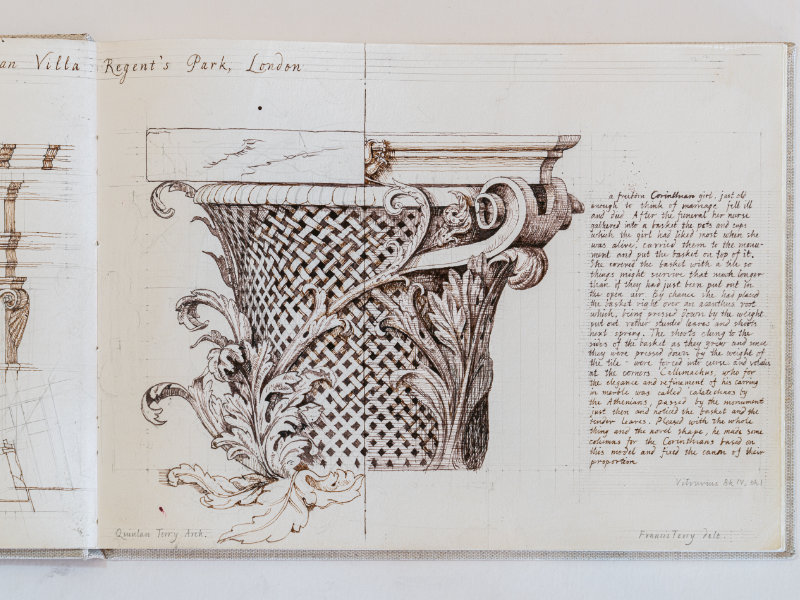 an Villa Regent's Park, London
a freeborn Corinthian girl, just old
enough to think of marriage fell ill
and died. After the funeral her nurse
gathered into a basket the pots and cups
which the girl had liked most when she
was alive, carried them to the monu-
ment and put the basket on top of it.
She covered the basket with a tile so
things might survive that much longer
than if they had just been put out in
the open air. By chance she had placed
the basket right over an acanthus root
which, being pressed down by the weight
put out rather stunted leaves and shoots
next spring. The shoots clung to the
sides of the basket as they grew and since
they were pressed down by the weight of
the tile - were forced into curves and volutes
at the corners. Callimachus, who for
the elegance and refinement of his carving
in marble was called catatechnos by
the Athenians, passed by the monument
just then and noticed the basket and the
tender leaves. Pleased with the whole
thing and the novel shape, he made some
columns for the Corinthians based on
this model and fixed the canon of their
proportion.
Vitruvius Bk IV, ch 1
Quinlan Terry Arch.
Francis Terry delt.